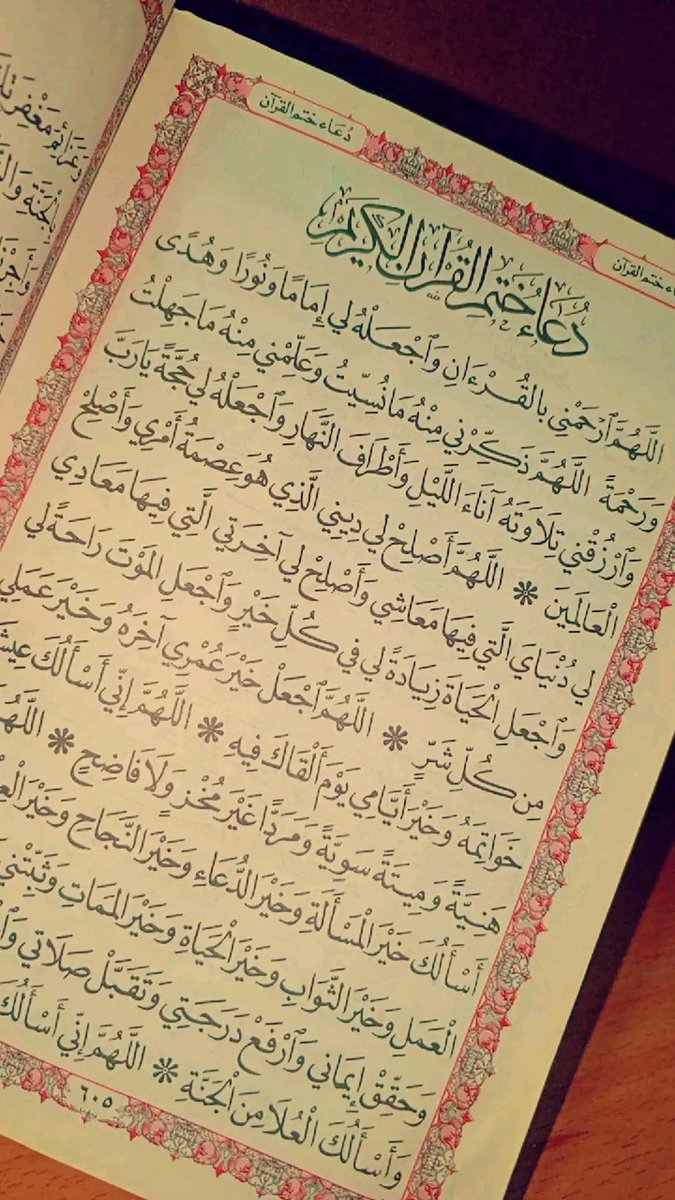 دُعَاء ختم القرآن
ختم القرآن
دُعَاءُ خَتْمِ القُرْآنِ الكَرِيمِ
اللَّهُمَّ ٱرْحَمْنِي بالقُرْءَانِ وَٱجْعَلْهُ لي إِمَامًا وَنُورًا وَهُدًى
وَرَحْمَةً اللَّهُمَّ ذَكِّرْني مِنْهُ مَا نُسِّيتُ وَعَلِّمْني مِنْهُ مَا جَهِلْتُ
وَٱرْزُقْني تِلَاوَتَهُ آنَاءَ اللَّيْلِ وَأَطْرَافَ النَّهَارِ وَٱجْعَلْهُ لي حُجَّةً يَارَبَّ
الْعَالَمِينَ * اللَّهُمَّ أَصْلِحْ لي دِيني الَّذِي هُوَ عِصْمَةُ أَمْرِي وَأَصْلِحْ
لي دُنْيَايَ الَّتي فِيهَا مَعَاشِي وَأَصْلِحْ لي آخِرَتي الَّتي فِيهَا مَعَادِي
وَٱجْعَلِ الْحَيَاةَ زِيَادَةً لي في كُلِّ خَيْرٍ وَٱجْعَلِ المَوْتَ رَاحَةً لي
مِن كُلِّ شَرٍّ * اللَّهُمَّ ٱجْعَلْ خَيْرَ عُمْرِي آخِرَهُ وَخَيْرَ عَمَلِي
خَوَاتِمَهُ وَخَيْرَ أَيَّامِي يَوْمَ أَلْقَاكَ فِيهِ * اللَّهُمَّ إِنِّي أَسْأَلُكَ
هَنِيَّةً وَمِيتَةً سَوِيَّةً وَمَرَدًّا غَيْرَ مُخْزٍ وَلَا فَاضِحٍ *
أَسْأَلُكَ خَيْرَ الْمَسْأَلَةِ وَخَيْرَ الدُّعَاءِ وَخَيْرَ النَّجَاحِ وَخَيْرَ
الْعَمَلِ وَخَيْرَ الثَّوَابِ وَخَيْرَ الْحَيَاةِ وَخَيْرَ المَمَاتِ وَثَبِّتْني
وَحَقِّقْ إِيمَاني وَٱرْفَعْ دَرَجَتِي وَتَقَبَّلْ صَلَاتي
وَأَسْأَلُكَ الْعُلَا مِنَ الْجَنَّةِ * اللَّهُمَّ إِنِّي أَسْأَلُكَ
٦٠٥